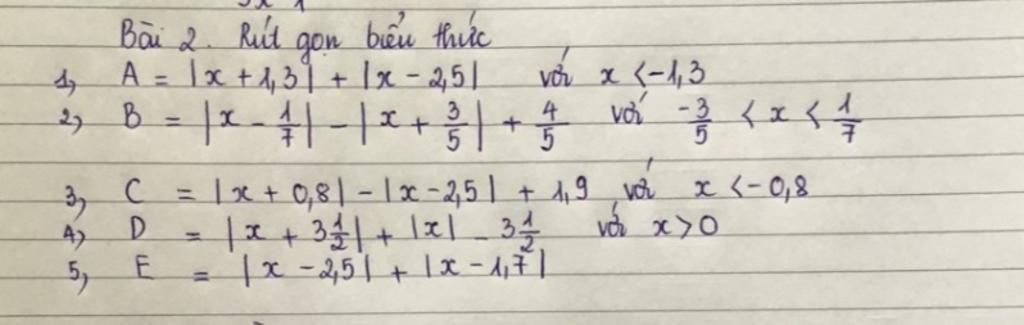 Bài 2. Rút gọn biểu thức
1, A = |x + 1,3| + |x - 2,5| với x < -1,3
2, B = |x - 1/7| - |x + 3/5| + 4/5 với -3/5 < x < 1/7
3, C = |x + 0,8| - |x - 2,5| + 1,9 với x < -0,8
4, D = |x + 3 1/2| + |x| - 3 1/2 với x > 0
5, E = |x - 2,5| + |x - 1,7|